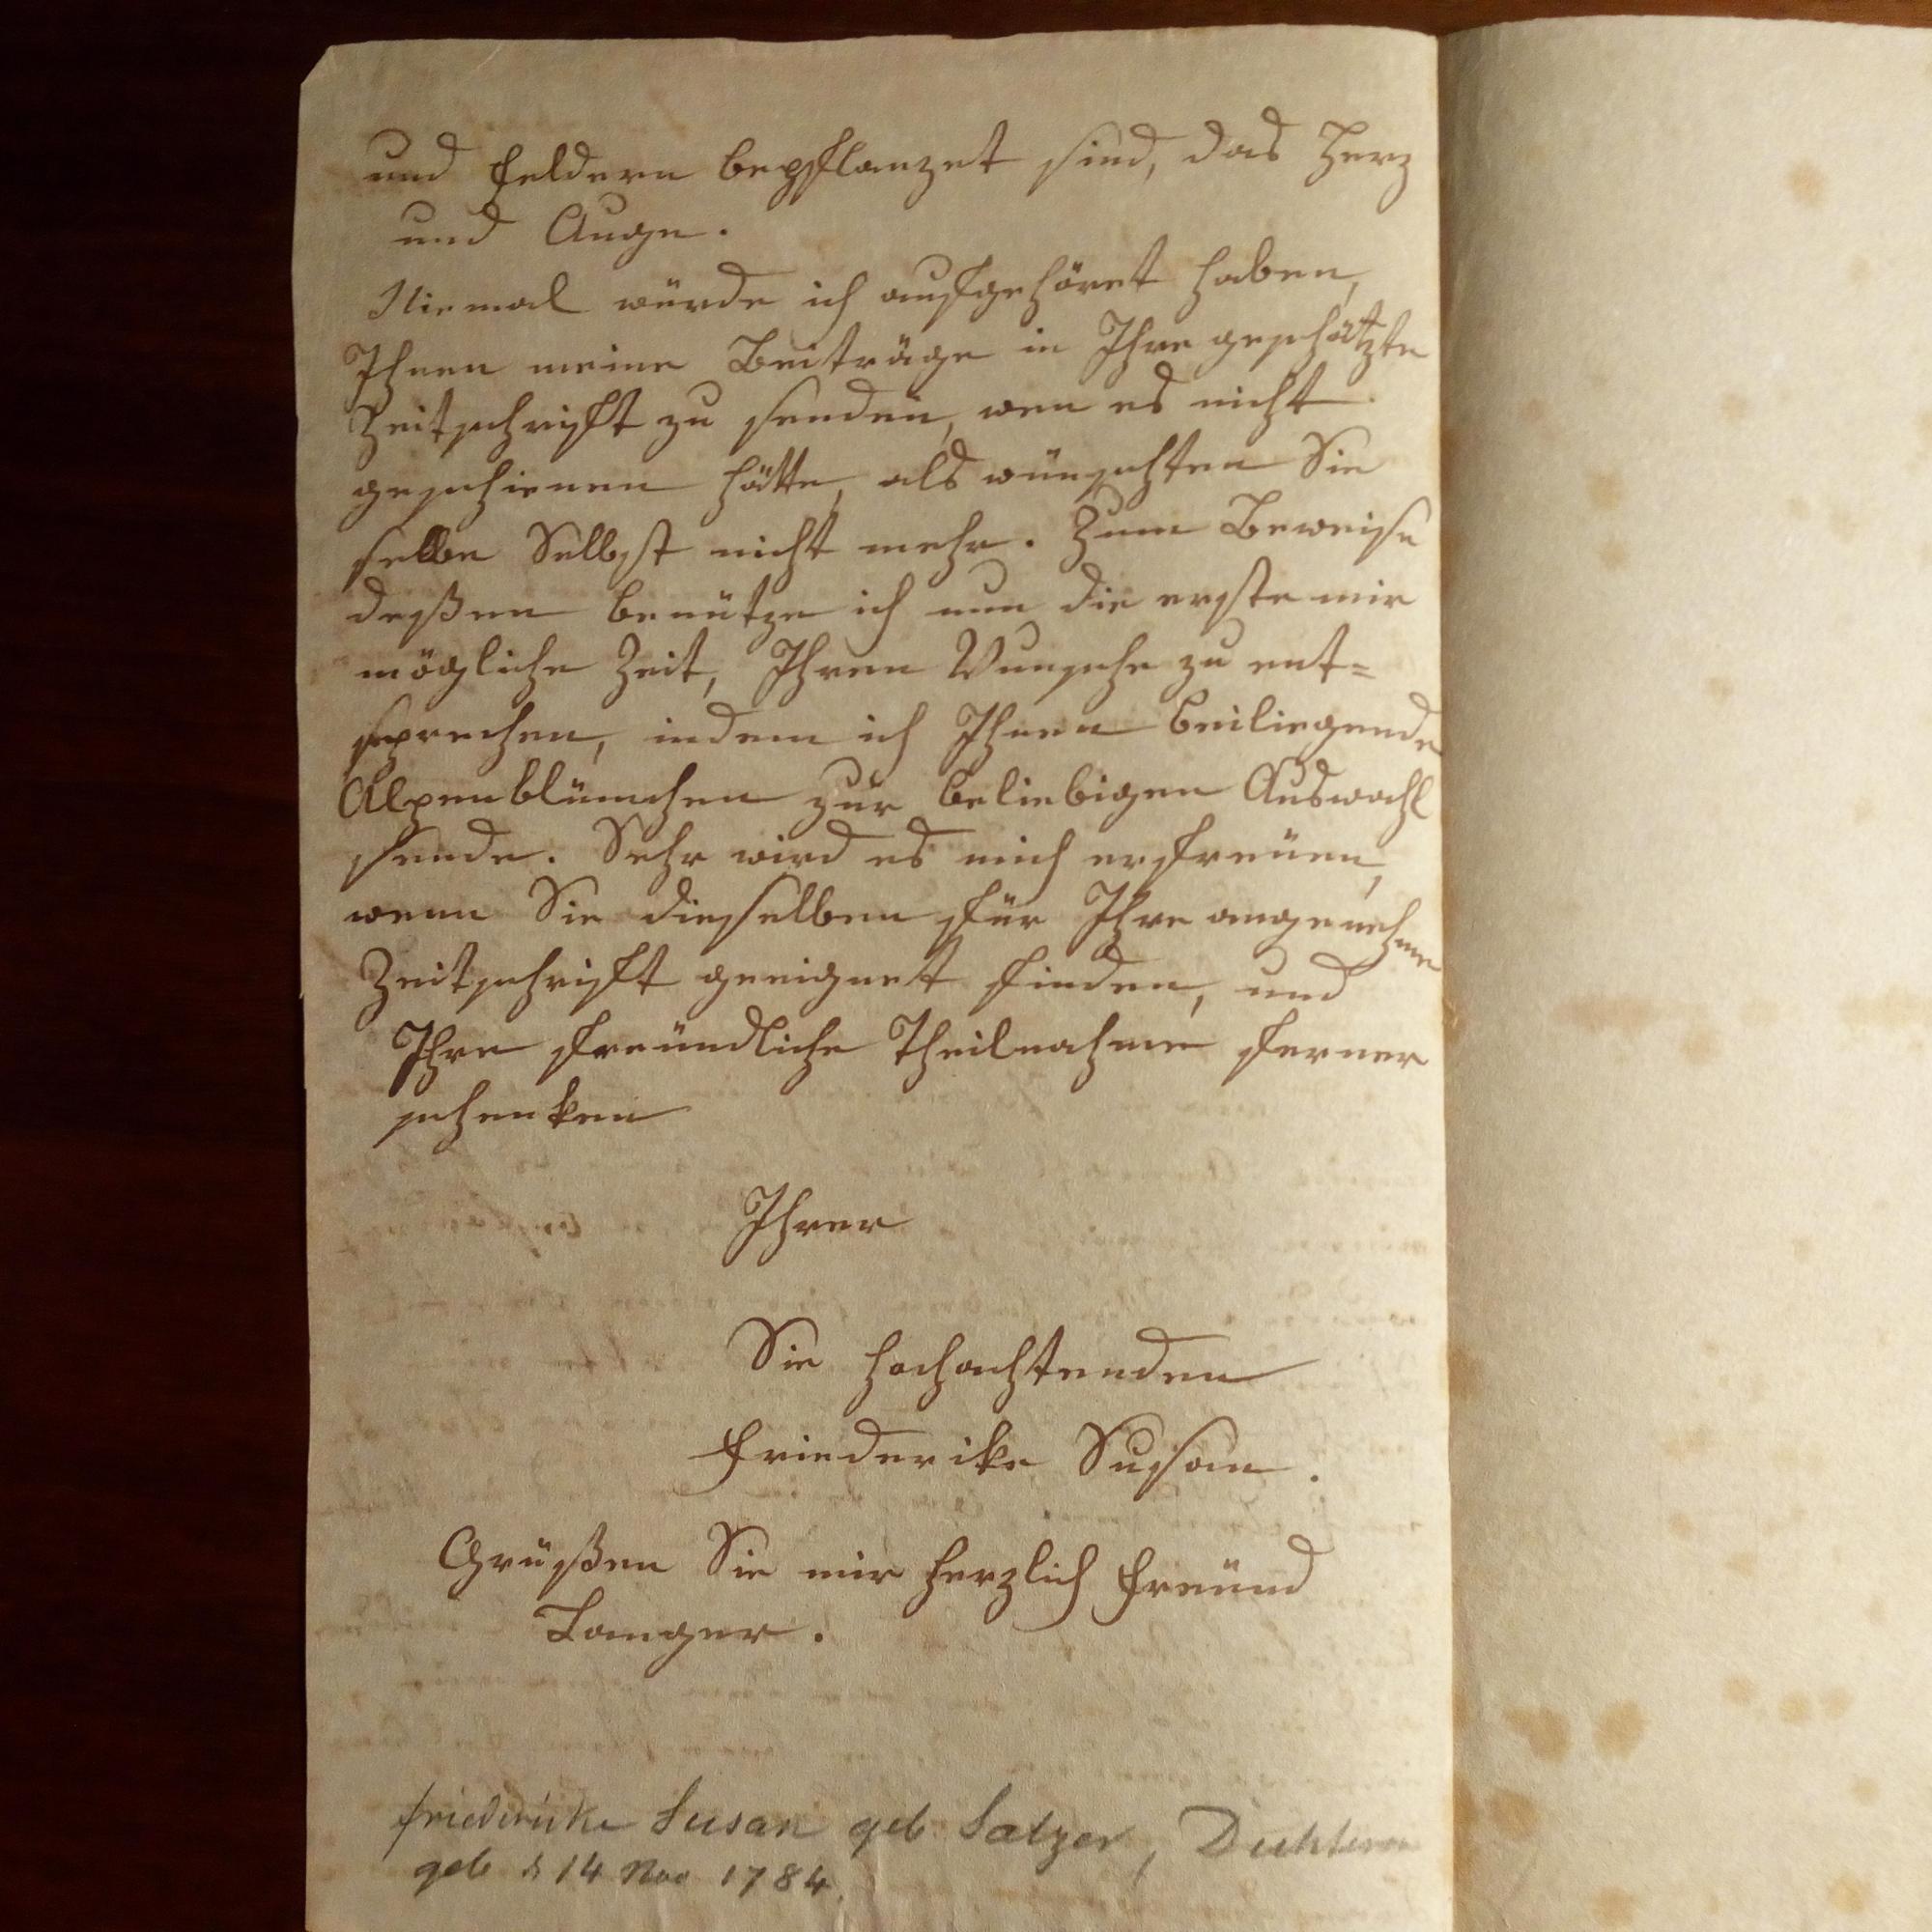 und Feldern bepflanzet sind, das Herz
und Auge.
Niemal würde ich aufgehöret haben,
Ihnen meine Beiträge in Ihre geschätzte
Zeitschrift zu senden, wen es nicht
geschienen hätte, als wünschten Sie
selbe Selbst nicht mehr. Zum Beweise
deßen benütze ich nun die erste mir
mögliche Zeit, Ihren Wunsche zu ent=
sprechen, indem ich Ihnen beiliegende
Alpenblümchen zur beliebigen Auswahl
sende. Sehr wird es mich erfreuen,
wenn Sie dieselben für Ihre angenehme
Zeitschrift geeignet finden, und
Ihre freundliche Theilnahme ferner
schenken
Ihrer
Sie hochachtenden
Friederike Susan.
Grüßen Sie mir herzlich Freund
Langer.
Friederike Susan geb Salzer, Dichterin
geb d 14 Nov 1784.